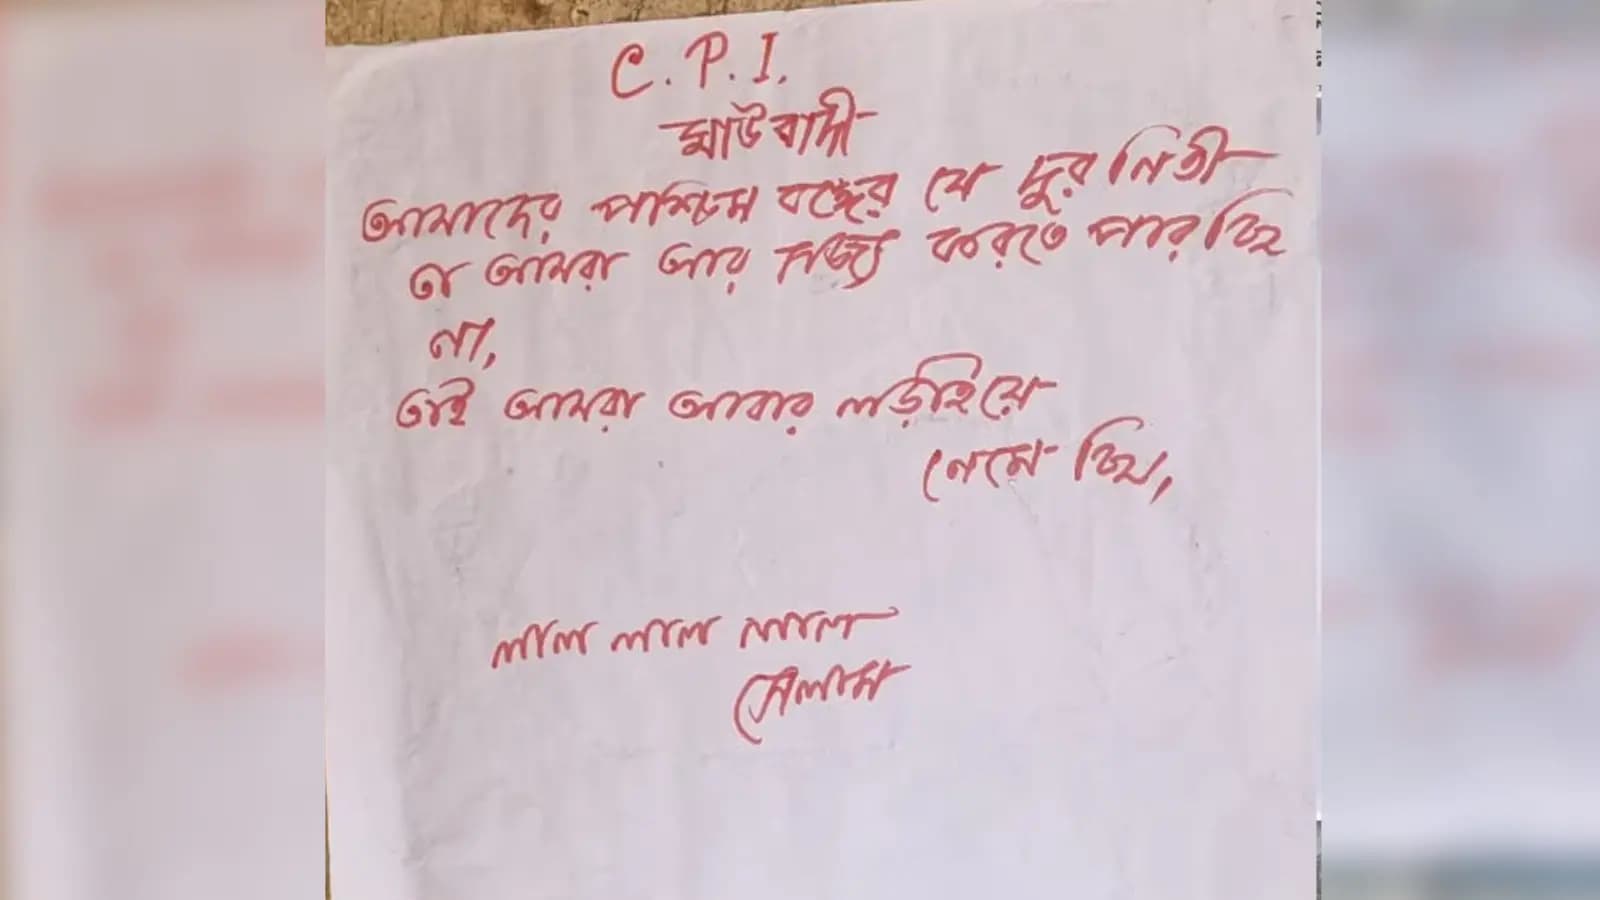 C.P.I.
মাউবাদী
আমাদের পশ্চিম বঙ্গের যে দুরনিতী
তা আমরা আর সজ্য করতে পারছি
না,
তাই আমরা আবার লড়াইয়ে
নেমেছি,
লাল লাল লাল
সেলাম